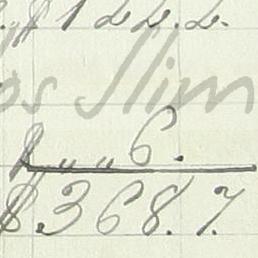 $122.2.
os Slim
$ „ „ 6.
$368.7.